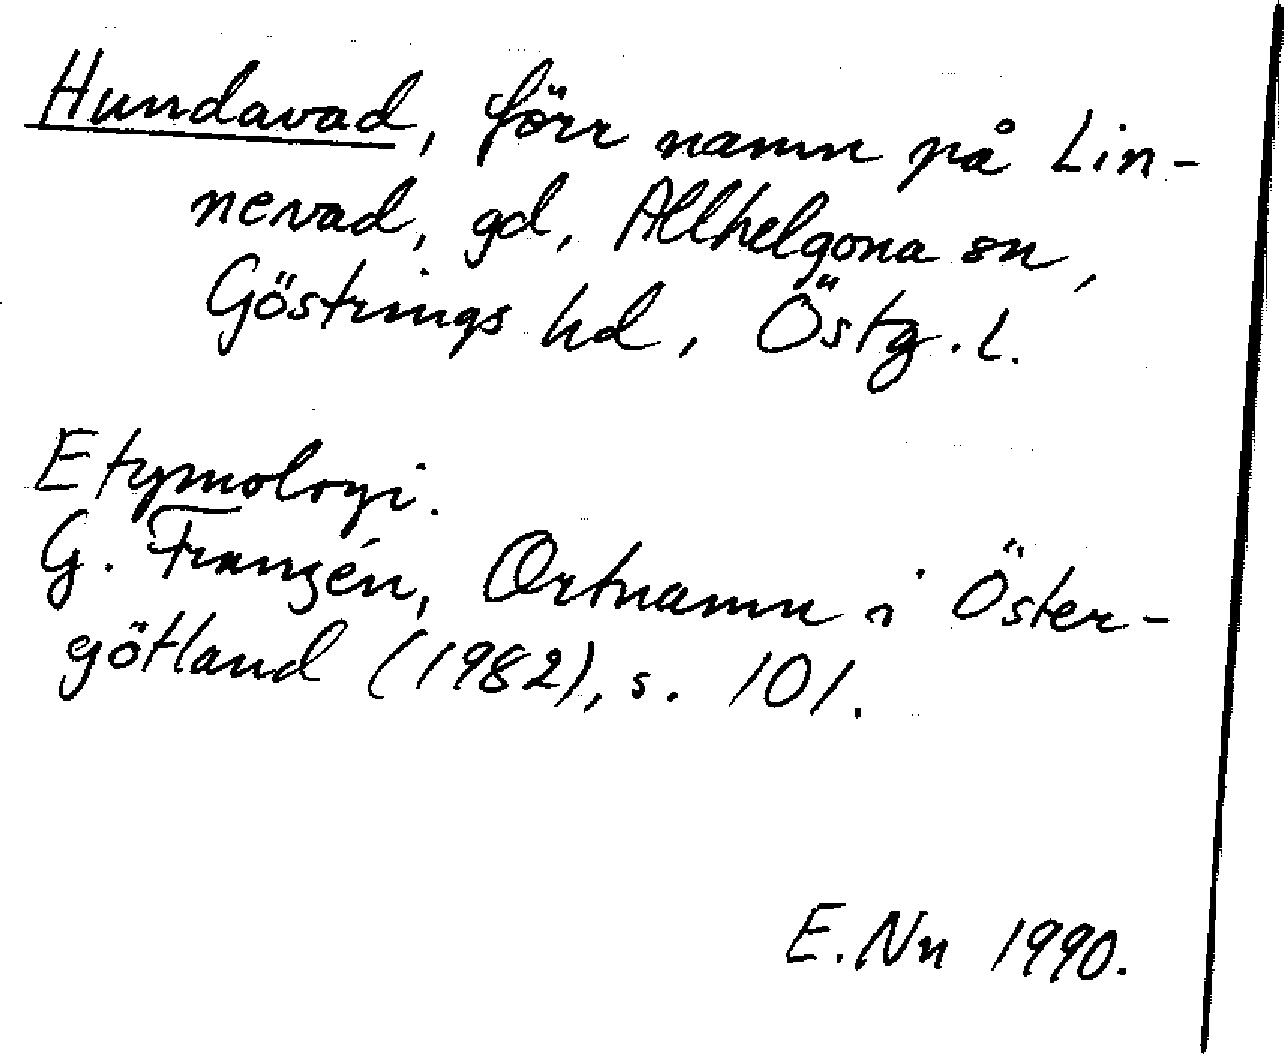 Hundavad, förr namn på Lin-
nevad, gd, Allhelgona sn,
Göstrings hd, Östg. l.
Etymologi.
G. Franzén, Ortnamn i Öster-
götland (1982), s. 101.
E. Nn 1990.